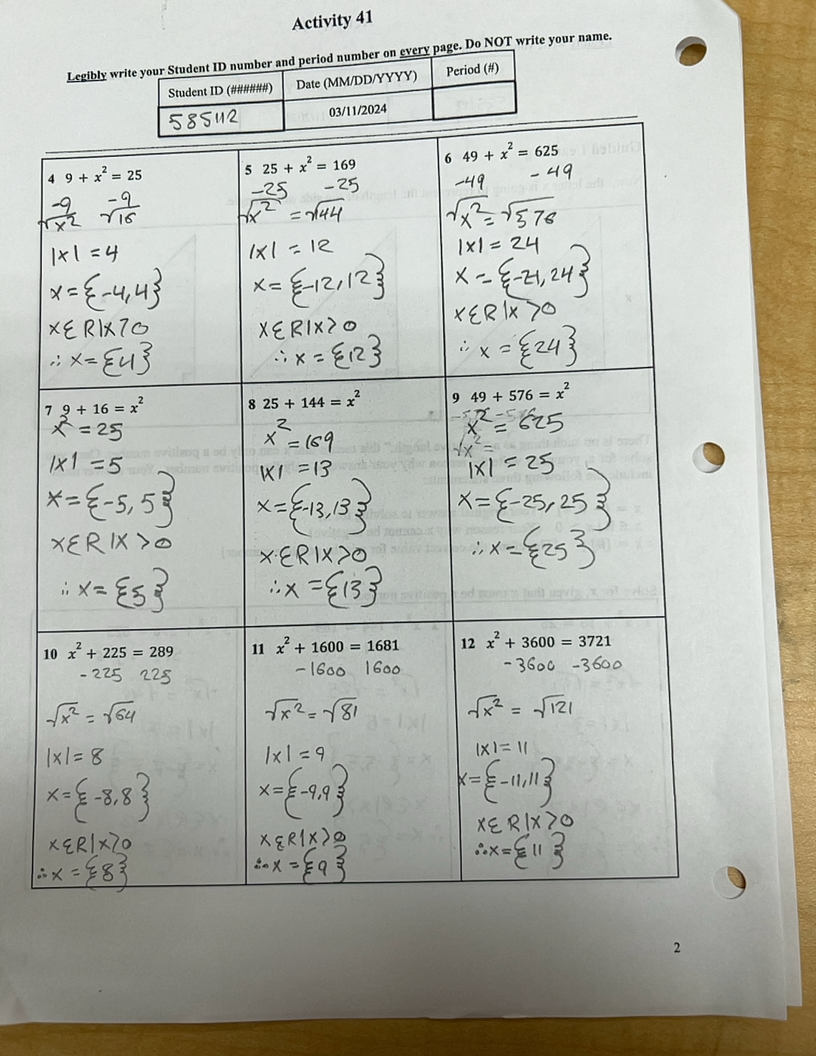 Activity 41
Legibly write your Student ID number and period number on every page. Do NOT write your name.
Student ID (######) Date (MM/DD/YYYY) Period (#)
58542 03/11/2024
4 9 + x² = 25
-9 -9
√x² √16
|x| = 4
x = {-4, 4}
x ∈ R | x > 0
∴ x = {4}
5 25 + x² = 169
-25 -25
√x² = √144
|x| = 12
x = {-12, 12}
x ∈ R | x > 0
∴ x = {12}
6 49 + x² = 625
-49 -49
√x² = √576
|x| = 24
x = {-24, 24}
x ∈ R | x > 0
∴ x = {24}
7 9 + 16 = x²
x² = 25
|x| = 5
x = {-5, 5}
x ∈ R | x > 0
∴ x = {5}
8 25 + 144 = x²
x² = 169
|x| = 13
x = {-13, 13}
x ∈ R | x > 0
∴ x = {13}
9 49 + 576 = x²
x² = 625
√x² =
|x| = 25
x = {-25, 25}
∴ x = {25}
10 x² + 225 = 289
-225 225
√x² = √64
|x| = 8
x = {-8, 8}
x ∈ R | x > 0
∴ x = {8}
11 x² + 1600 = 1681
-1600 1600
√x² = √81
|x| = 9
x = {-9, 9}
x ∈ R | x > 0
∴ x = {9}
12 x² + 3600 = 3721
-3600 -3600
√x² = √121
|x| = 11
x = {-11, 11}
x ∈ R | x > 0
∴ x = {11}
2